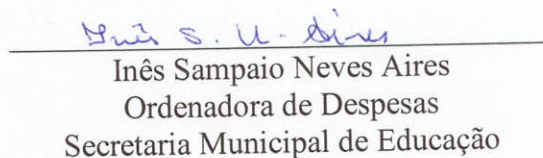 Inês S. N. Aires
Inês Sampaio Neves Aires
Ordenadora de Despesas
Secretaria Municipal de Educação